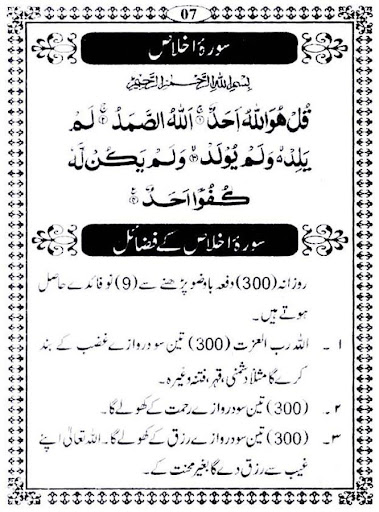 07
سورۂ اخلاص
بِسْمِ اللّٰهِ الرَّحْمٰنِ الرَّحِیْمِ
قُلْ هُوَ اللّٰهُ اَحَدٌ ۚ﴿۱﴾ اَللّٰهُ الصَّمَدُ ۚ﴿۲﴾ لَمْ
یَلِدْ ۙ۬ وَ لَمْ یُوْلَدْ ۙ﴿۳﴾ وَ لَمْ یَكُنْ لَّهٗ
كُفُوًا اَحَدٌ ﴿۴﴾
سورۂ اخلاص کے فضائل
روزانہ (300) دفعہ باوضو پڑھنے سے (9) نو فائدے حاصل
ہوتے ہیں۔
۱۔ اللہ رب العزت (300) تین سو دروازے غضب کے بند
کرے گا مثلاً دشمنی، قہر، فتنہ وغیرہ۔
۲۔ (300) تین سو دروازے رحمت کے کھولے گا۔
۳۔ (300) تین سو دروازے رزق کے کھولے گا۔ اللہ تعالیٰ اپنے
غیب سے رزق دے گا بغیر محنت کے۔